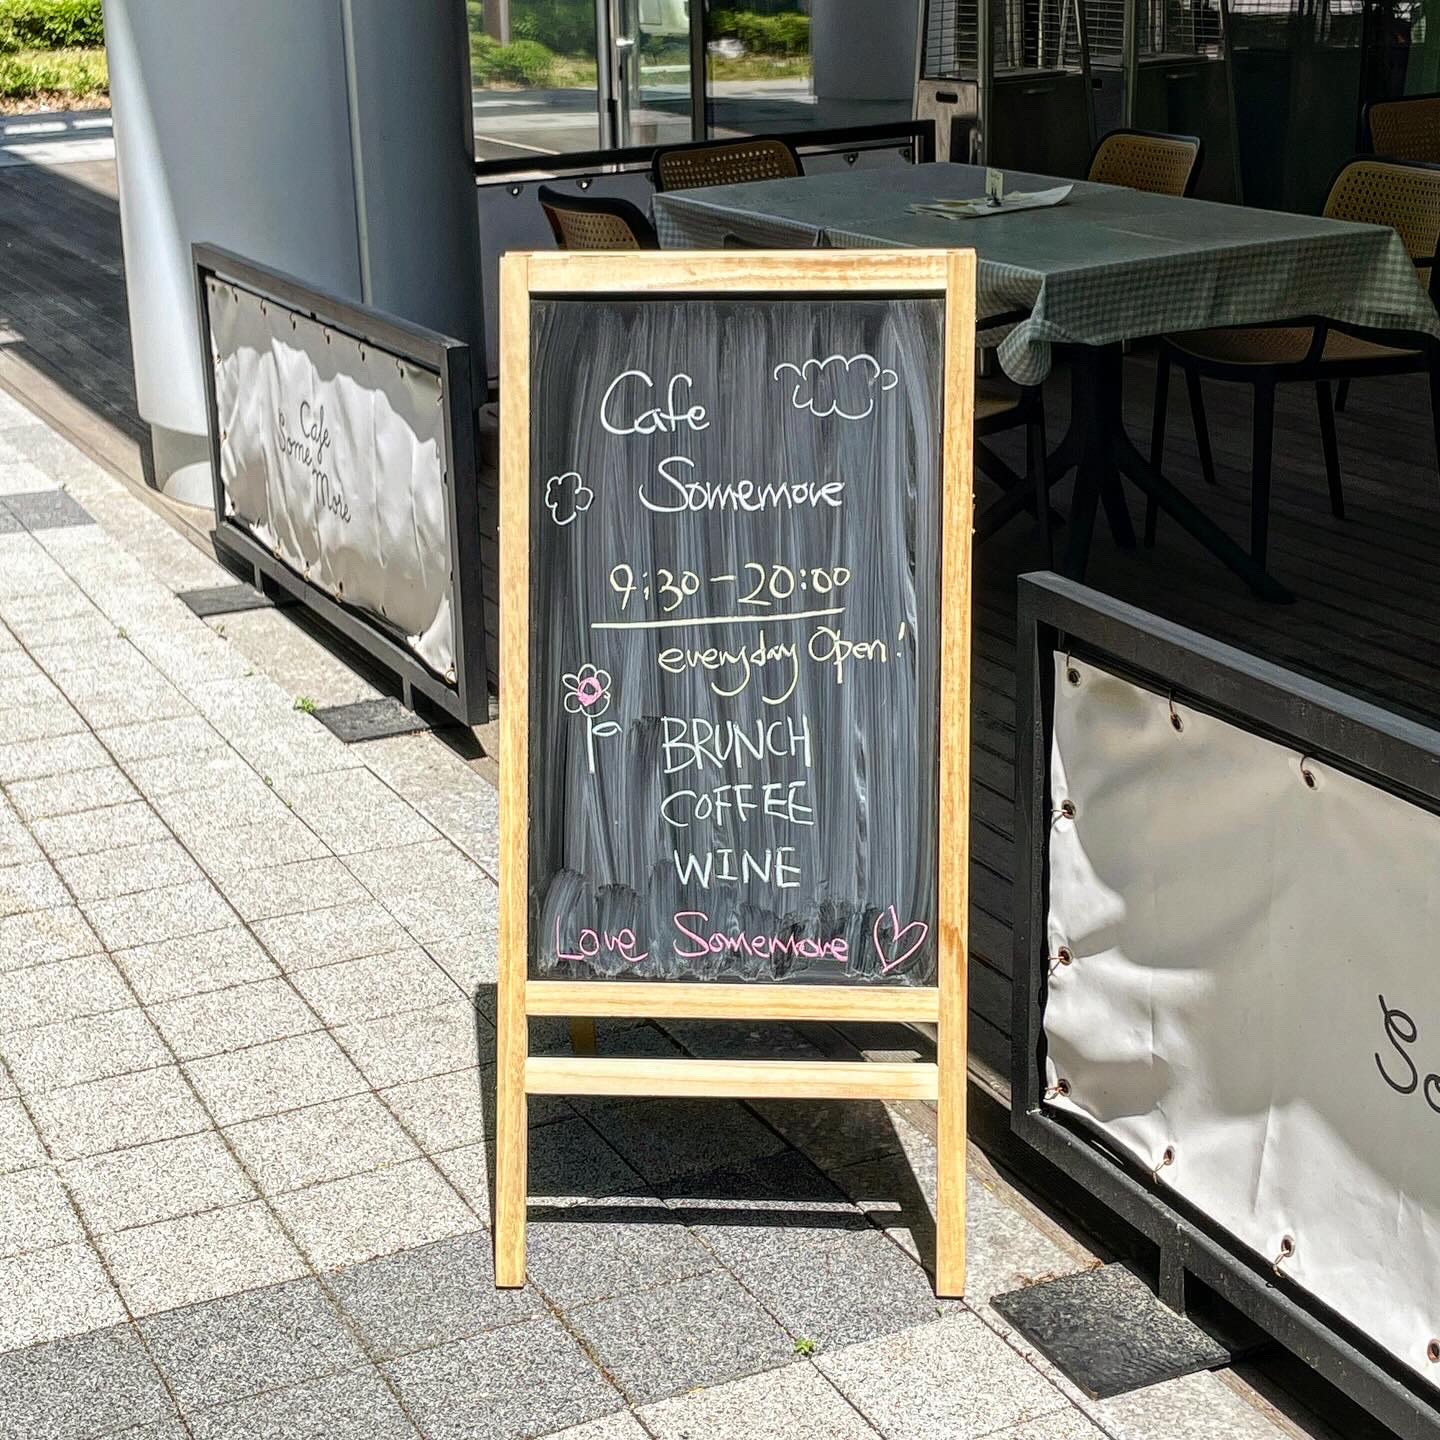 Cafe
Somemore
9:30-20:00
everyday Open!
BRUNCH
COFFEE
WINE
Love Somemore
Cafe
Some
More
So